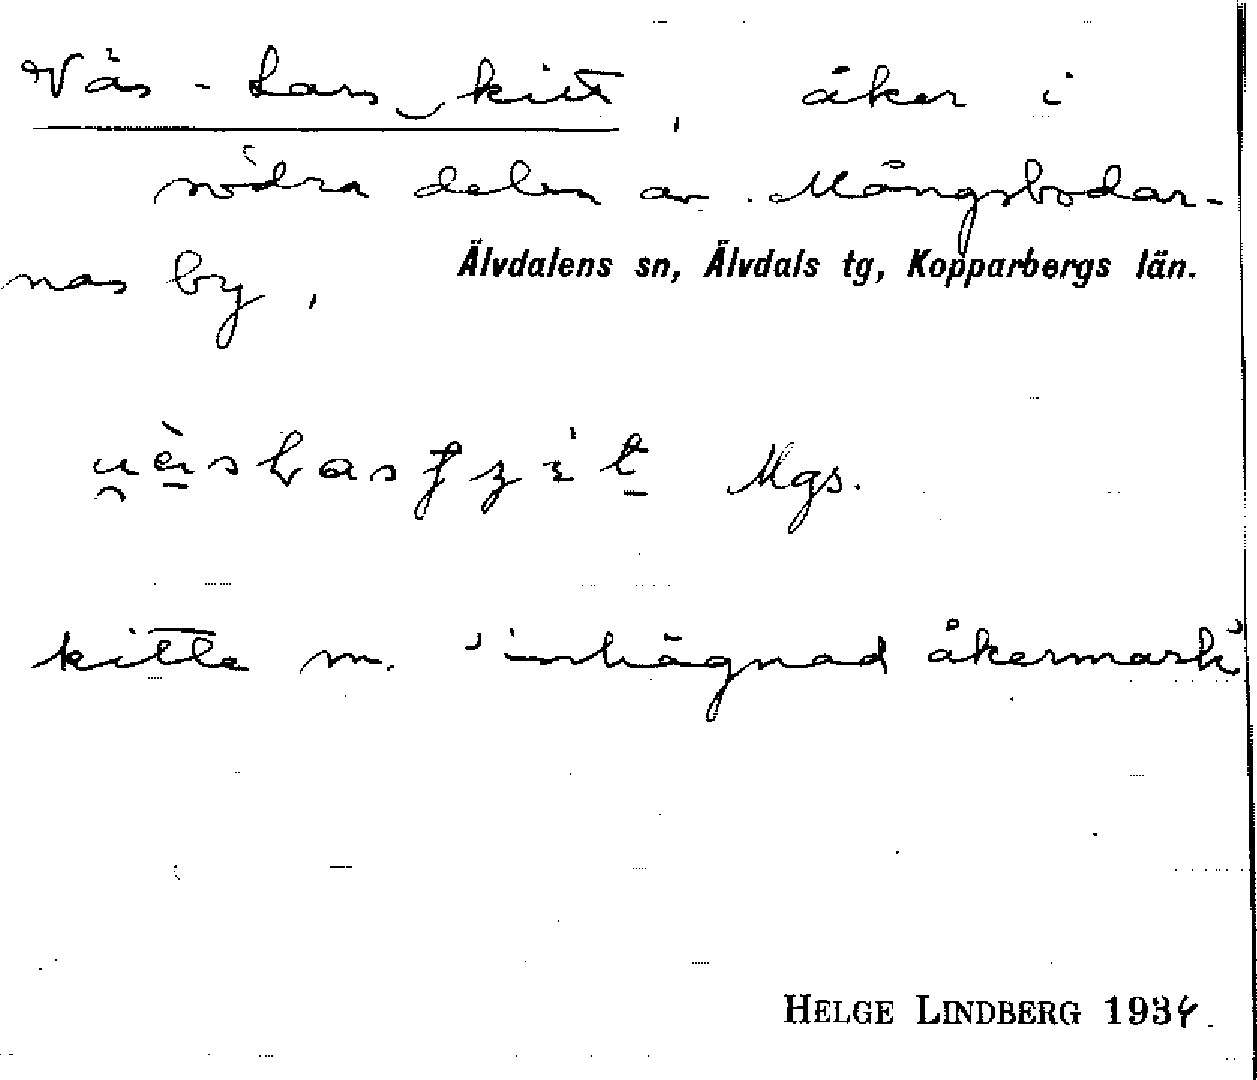 Väs-Lars kitt, åker i
södra delen av Mångsbodar-
nas by,
Älvdalens sn, Älvdals tg, Kopparbergs län.
Mgs.
kitte m. 'inhägnad åkermark'
HELGE LINDBERG 1934